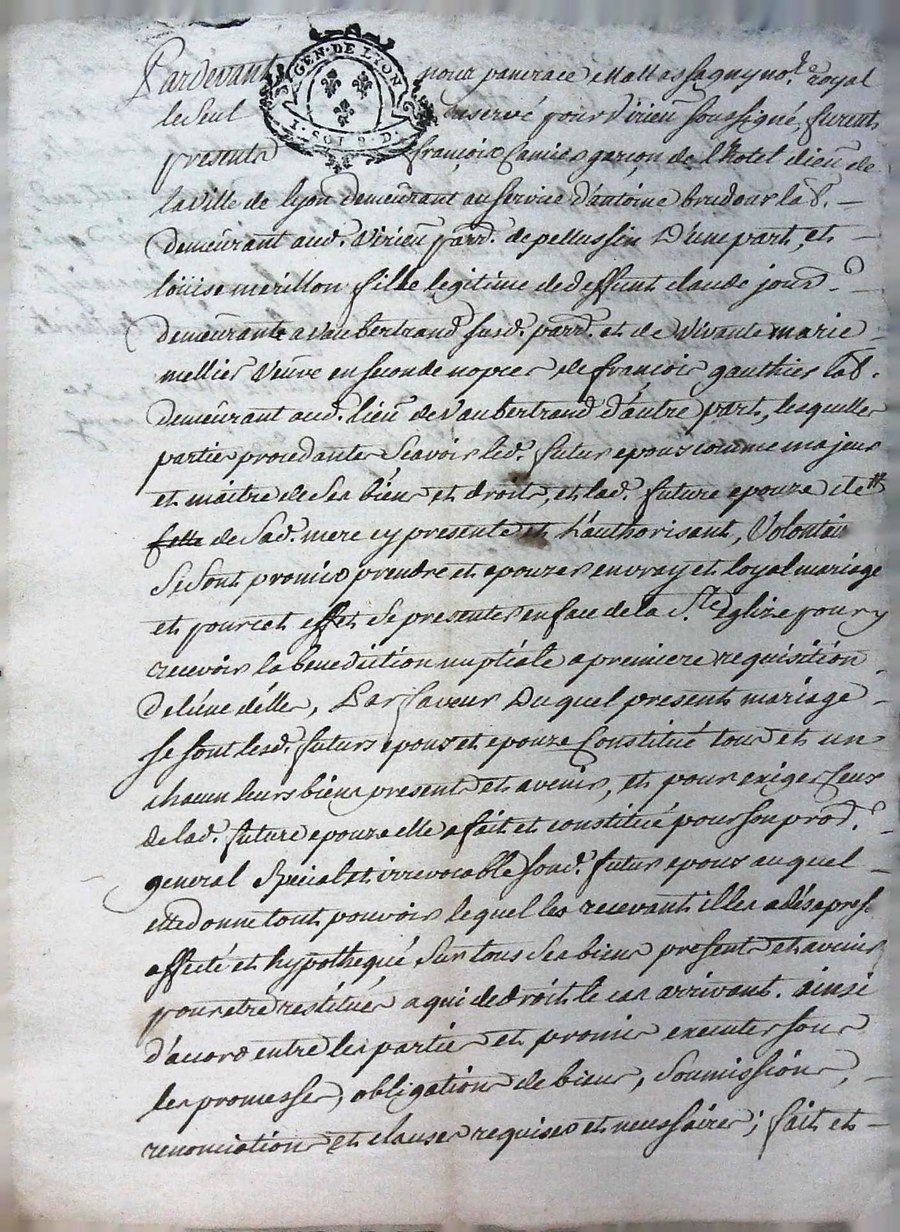 GEN·DE LYON
1·SOL 9·D.
Pardevant nous pancrace Mattassagny no.re royal
le seul reservé pour Virieu soussigné, furent
presents françois Camier garçon, de l'hotel dieu de
la ville de lyon demeurant au service d'antoine brudour lab.
demeurant aud. Virieu parr. de pellussin D'une part, et
loüise merillon fille legitime de deffunt claude jour.
demeurante a vaubertrand susd. parr. et de vivante marie
mellier veuve en seconde nopces de françois gauthier lab.
demeurant aud. lieu de Vaubertrand d'autre part, lesquelles
parties procedantes scavoir led. futur epoux comme majeur
et maitre de ses biens et droits, et lad. future epouze de
de sad. mere cy presente et l'authorisant, Volontair
se sont promis prendre et epouzer en vray et loyal mariage
et pour cet effet se presenter en face de la Ste Eglize pour y
recevoir la benediction nuptiale a premiere requisition
de l'une d'elles, Par faveur Duquel present mariage
se sont lesd. futurs epoux et epouze Constitué tous et un
chacun leurs biens presents et avenir, et pour exiger ceux
de lad. future epouze elle a fait et constitué pour son proc.
general special et irrevocable sond. futur epoux auquel
elle donne tout pouvoir lequel les recevant illes a dés apres.
affecté et hypothequé sur tous ses biens presents et avenir
pour etre restitués a qui de droit le cas arrivant. ainsi
d'accord entre les parties et promis executer sous
les promesses, obligations de biens, soumissions,
renonciations et clauses requises et necessaires; fait et